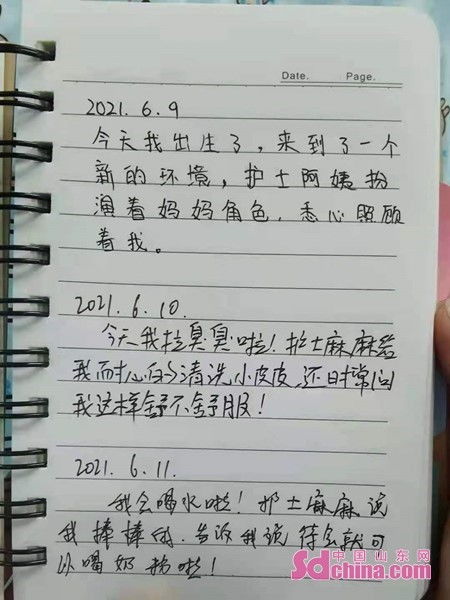 Date. Page.
2021.6.9
今天我出生了，来到了一个
新的环境，护士阿姨扮
演着妈妈角色，悉心照顾
着我。
2021.6.10.
今天我拉臭臭啦！护士麻麻给
我耐心的清洗小皮皮，还时常问
我这样舒不舒服！
2021.6.11.
我会喝水啦！护士麻麻说
我棒棒的，告诉我说待会就可
以喝奶粉啦！
中国山东网
Sdchina.com